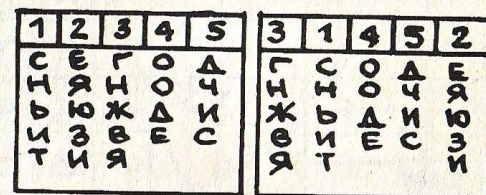 1 2 3 4 5
С Е Г О Д
Н Я Н О Ч
Ь Ю Ж Д И
И З В Е С
Т И Я
3 1 4 5 2
Г С О Д Е
Н Н О Ч Я
Ж Ь Д И Ю
В И Е С З
Я Т И